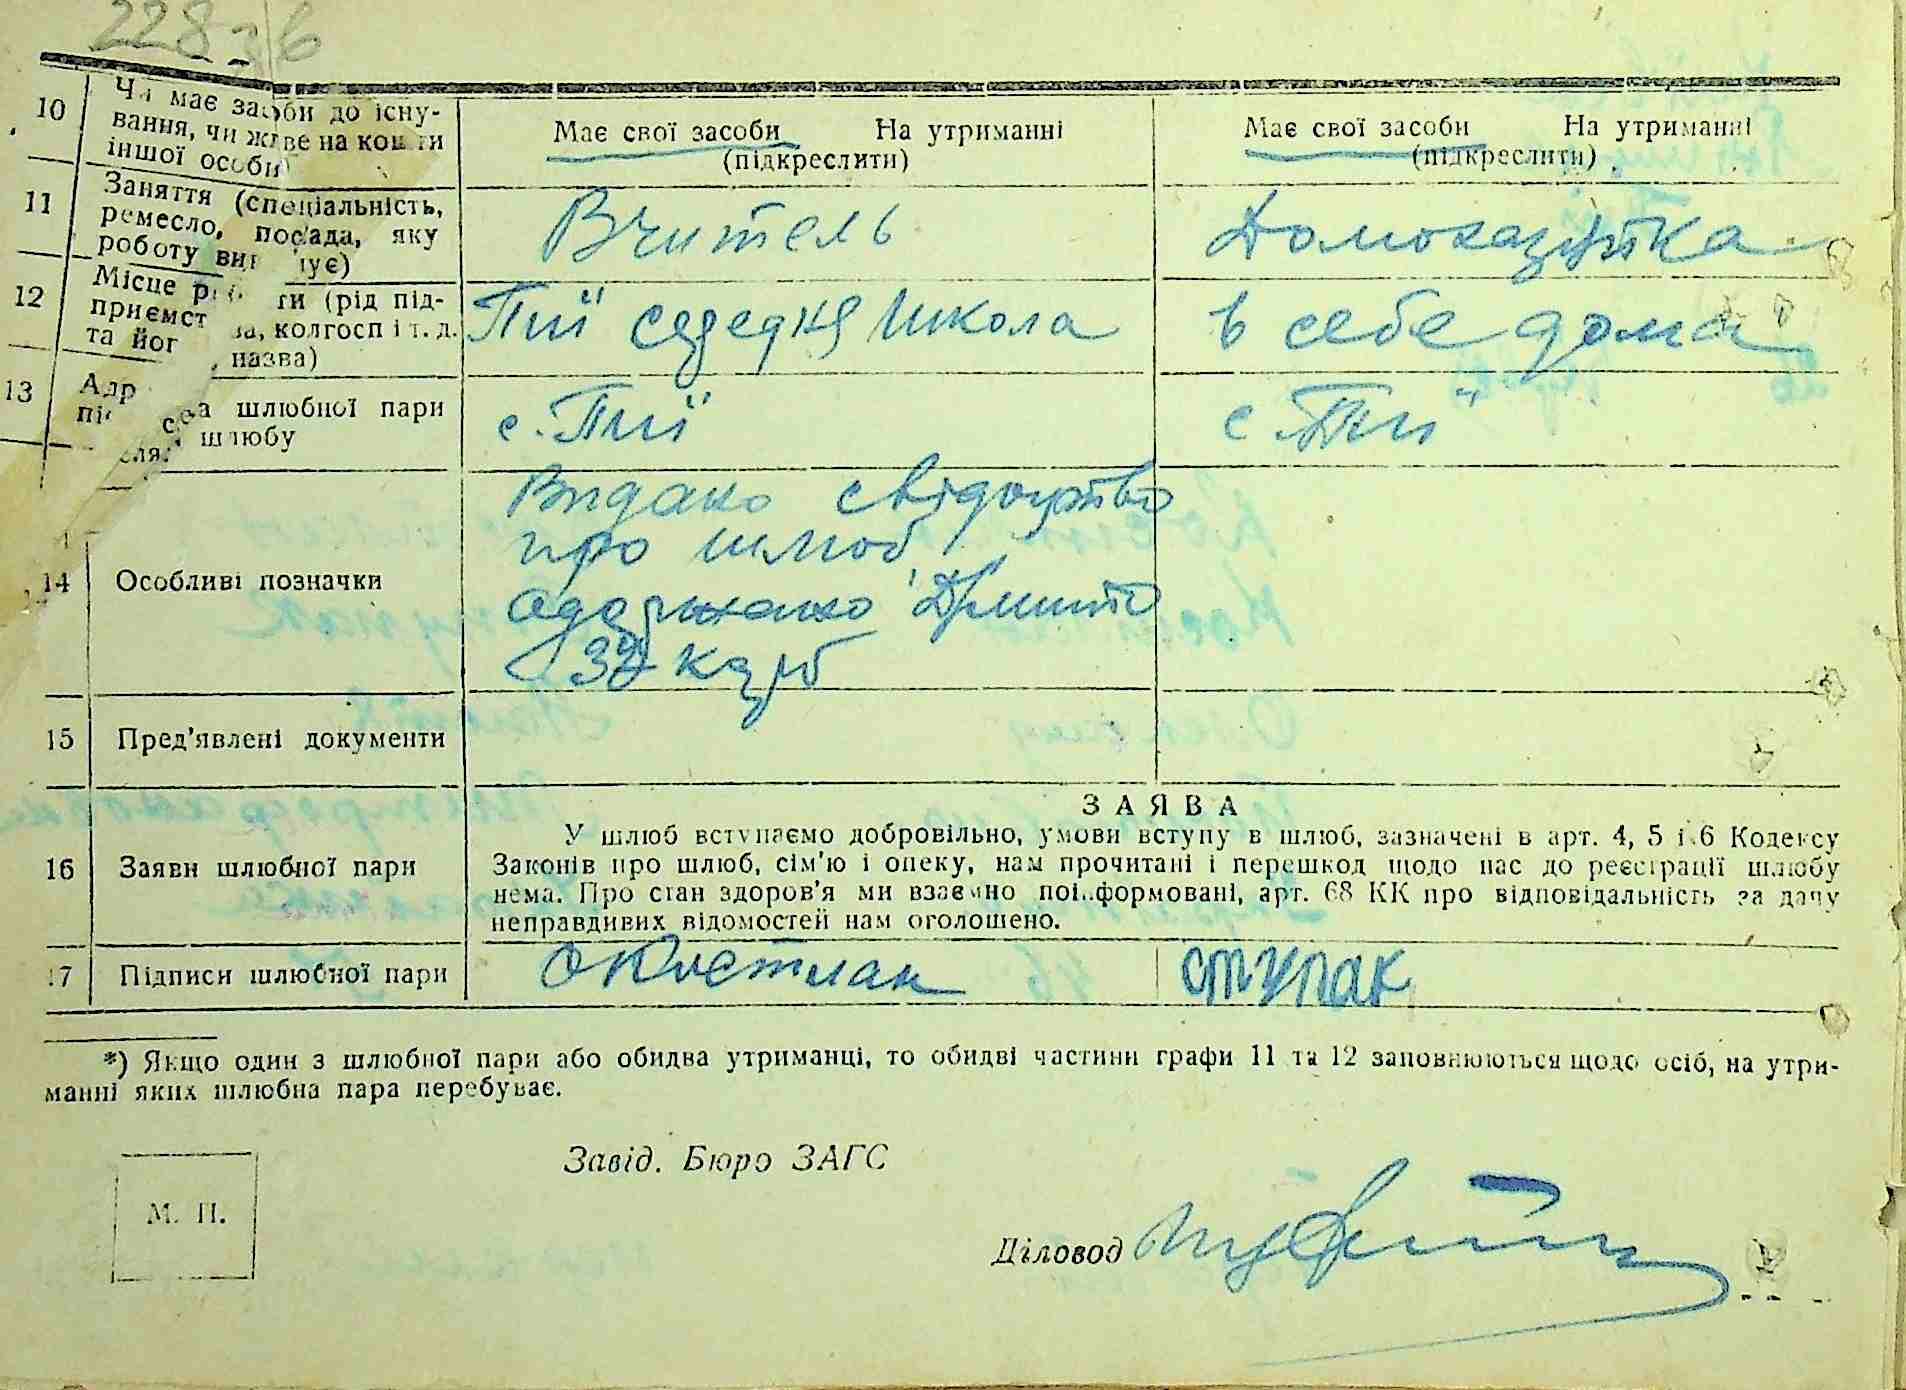 228 зв
10 Чи має засоби до існу-
вання, чи живе на кошти
іншої особи
Має свої засоби На утриманні
(підкреслити)
Має свої засоби На утриманні
(підкреслити)
11 Заняття (спеціальність,
ремесло, посада, яку
роботу виконує)
Вчитель
Домохазяйка
12 Місце роботи (рід під-
приємства, колгосп і т. д.
та його назва)
Пії середня школа
в себе дома
13 Адреса шлюбної пари
після шлюбу
с. Пії
с. Пії
14 Особливі позначки
Видано свідоцтво
про шлюб,
одержано
карб
15 Пред'явлені документи
16 Заяви шлюбної пари
ЗАЯВА
У шлюб вступаємо добровільно, умови вступу в шлюб, зазначені в арт. 4, 5 і 6 Кодексу
Законів про шлюб, сім'ю і опеку, нам прочитані і перешкод щодо нас до реєстрації шлюбу
нема. Про стан здоров'я ми взаємно поінформовані, арт. 68 КК про відповідальність за дачу
неправдивих відомостей нам оголошено.
17 Підписи шлюбної пари
ступак
*) Якщо один з шлюбної пари або обидва утриманці, то обидві частини графи 11 та 12 заповнюються щодо осіб, на утри-
манні яких шлюбна пара перебуває.
Завід. Бюро ЗАГС
М. П.
Діловод